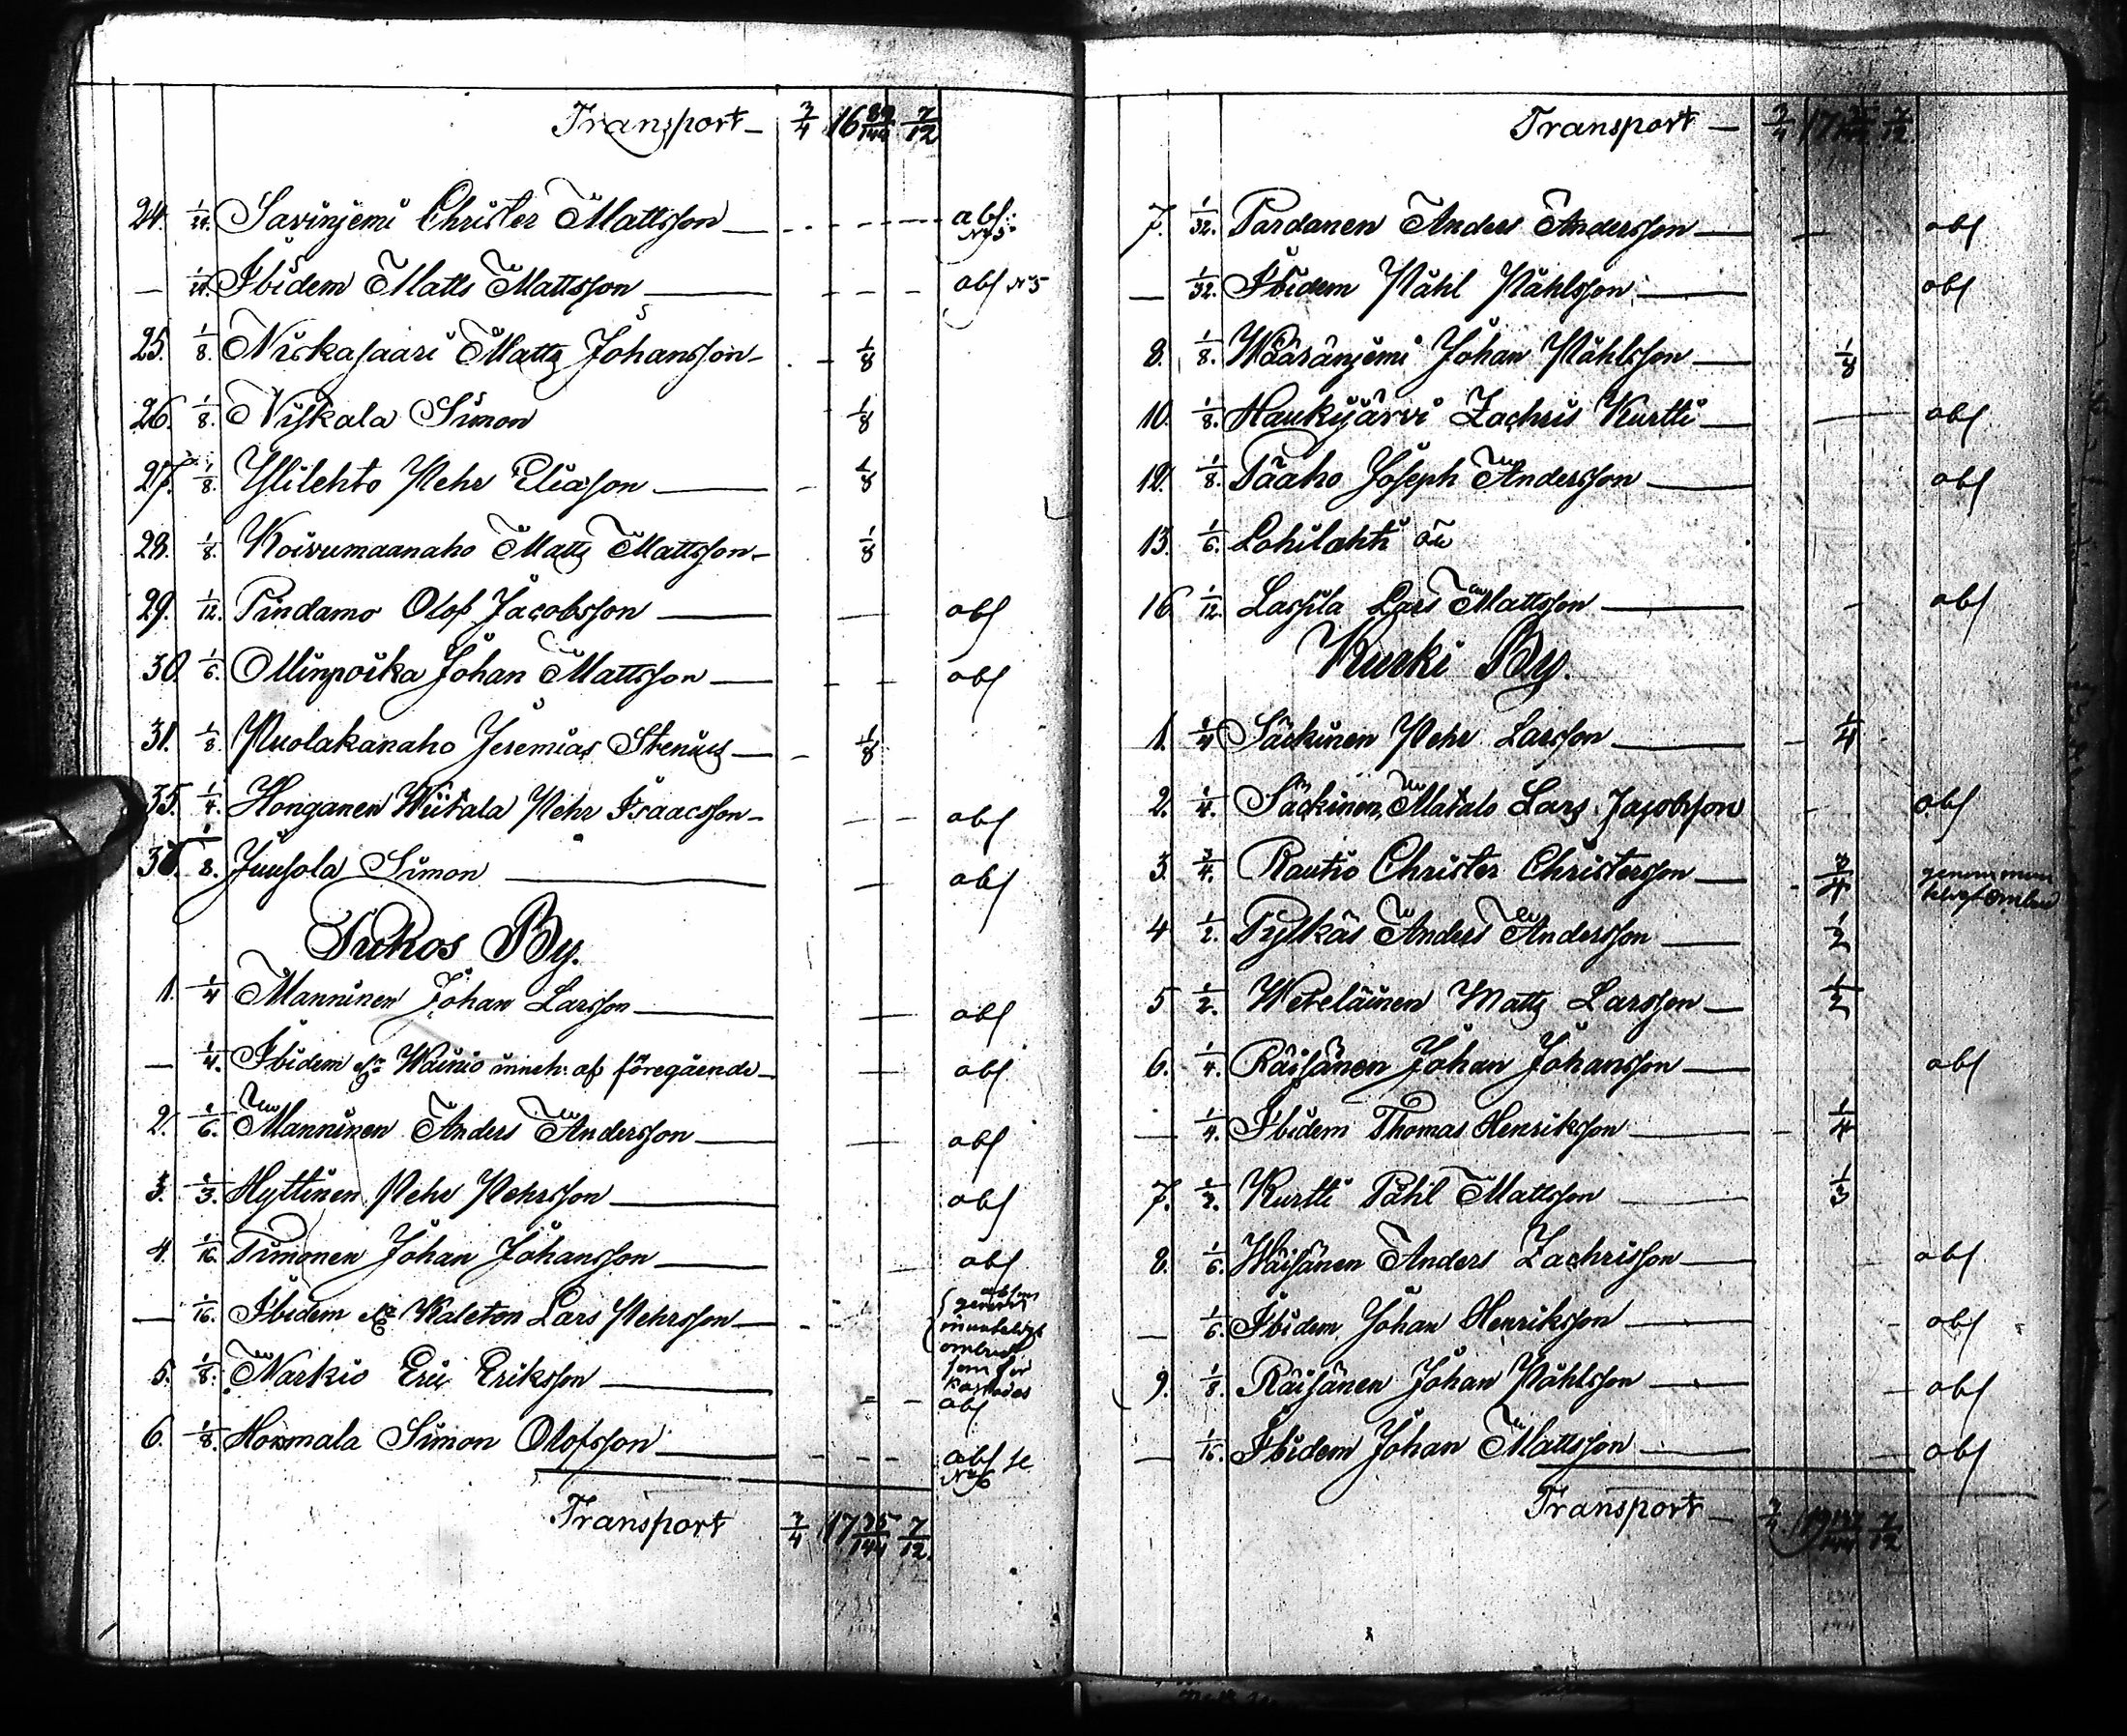 Transport — 3/4 16 89/144 7/12
24. 1/24. Savinjemi Christer Mattsson — abs: N:5
— 1/24. Ibidem Matts Mattsson — abs N:5
25. 1/8. Niskasaari Matts Johansson — 1/8
26. 1/8. Niskala Simon 1/8
27. 1/8. Ylilehto Pehr Eliasson — 1/8
28. 1/8. Koivumaanaho Matts Mattsson — 1/8
29. 1/12. Pindamo Olof Jacobsson — abs
30. 1/6. Ollinpoika Johan Mattsson — abs
31. 1/8. Puolakanaho Jeremias Stenius — 1/8
35. 1/4. Honganen Wiitala Pehr Isaacsson — abs
1/8. Juusola Simon — abs
By.
1. 1/4 Manninen Johan Larsson — abs
— 1/4. Ibidem Wainio inneh. af föregående — abs
2. 1/6. Manninen Anders Andersson — abs
3. 1/3. Hyttinen Pehr Pehrsson — abs
4. 1/16. Timonen Johan Johansson — abs
— 1/16. Ibidem Kaleton Lars Pehrsson —
5. 1/8. Narkio Eric Eriksson — abs
6. 1/8. Hormala Simon Olofsson — abs se N:6
Transport 3/4 17 35/144 7/12.
Transport — 3/4 17 7/12.
7. 1/32. Pardanen Anders Andersson — abs
— 1/32. Ibidem Påhl Påhlsson — abs
8. 1/8. Wääränjemi Johan Påhlsson — 1/8
10. 1/8. Haukijärvi Zachris Kurtti — abs
12. 1/8. Pääho Joseph Andersson — abs
13. 1/6. Lohilahti öde
16. 1/12. Lassila Lars Mattsson — abs
Kurki By.
1. 1/4 Säckinen Pehr Larsson — 1/4
2. 1/4. Säckinen, Matalo Lars Jacobsson abs
3. 3/4. Rautio Christer Christersson — 3/4 genom
4 1/2. Pylkäs Anders Andersson — 1/2
5 1/2. Weteläinen Matts Larsson — 1/2
6. 1/4. Räisänen Johan Johansson — abs
— 1/4. Ibidem Thomas Henriksson — 1/4
7. 1/2. Kurtti Påhl Mattsson — 1/2
8. 1/6. Wäisänen Anders Zachrisson — abs
— 1/6. Ibidem Johan Henriksson — abs
9. 1/8. Räisänen Johan Påhlsson — abs
— 1/16. Ibidem Johan Mattsson — abs
Transport — 3/4 19 7/12